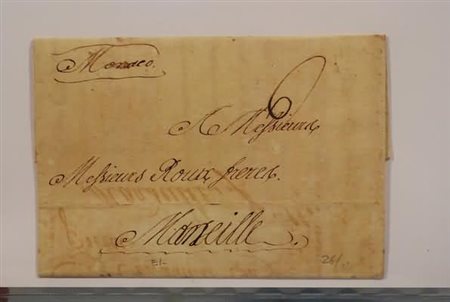 Monaco.
A Messieurs
Messieurs Roux freres.
Marseille.